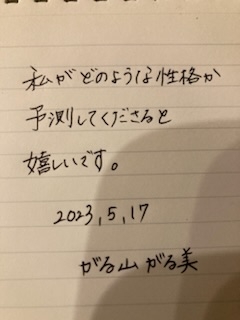 私がどのような性格か
予測してくださると
嬉しいです。
2023,5,17
がる山がる美